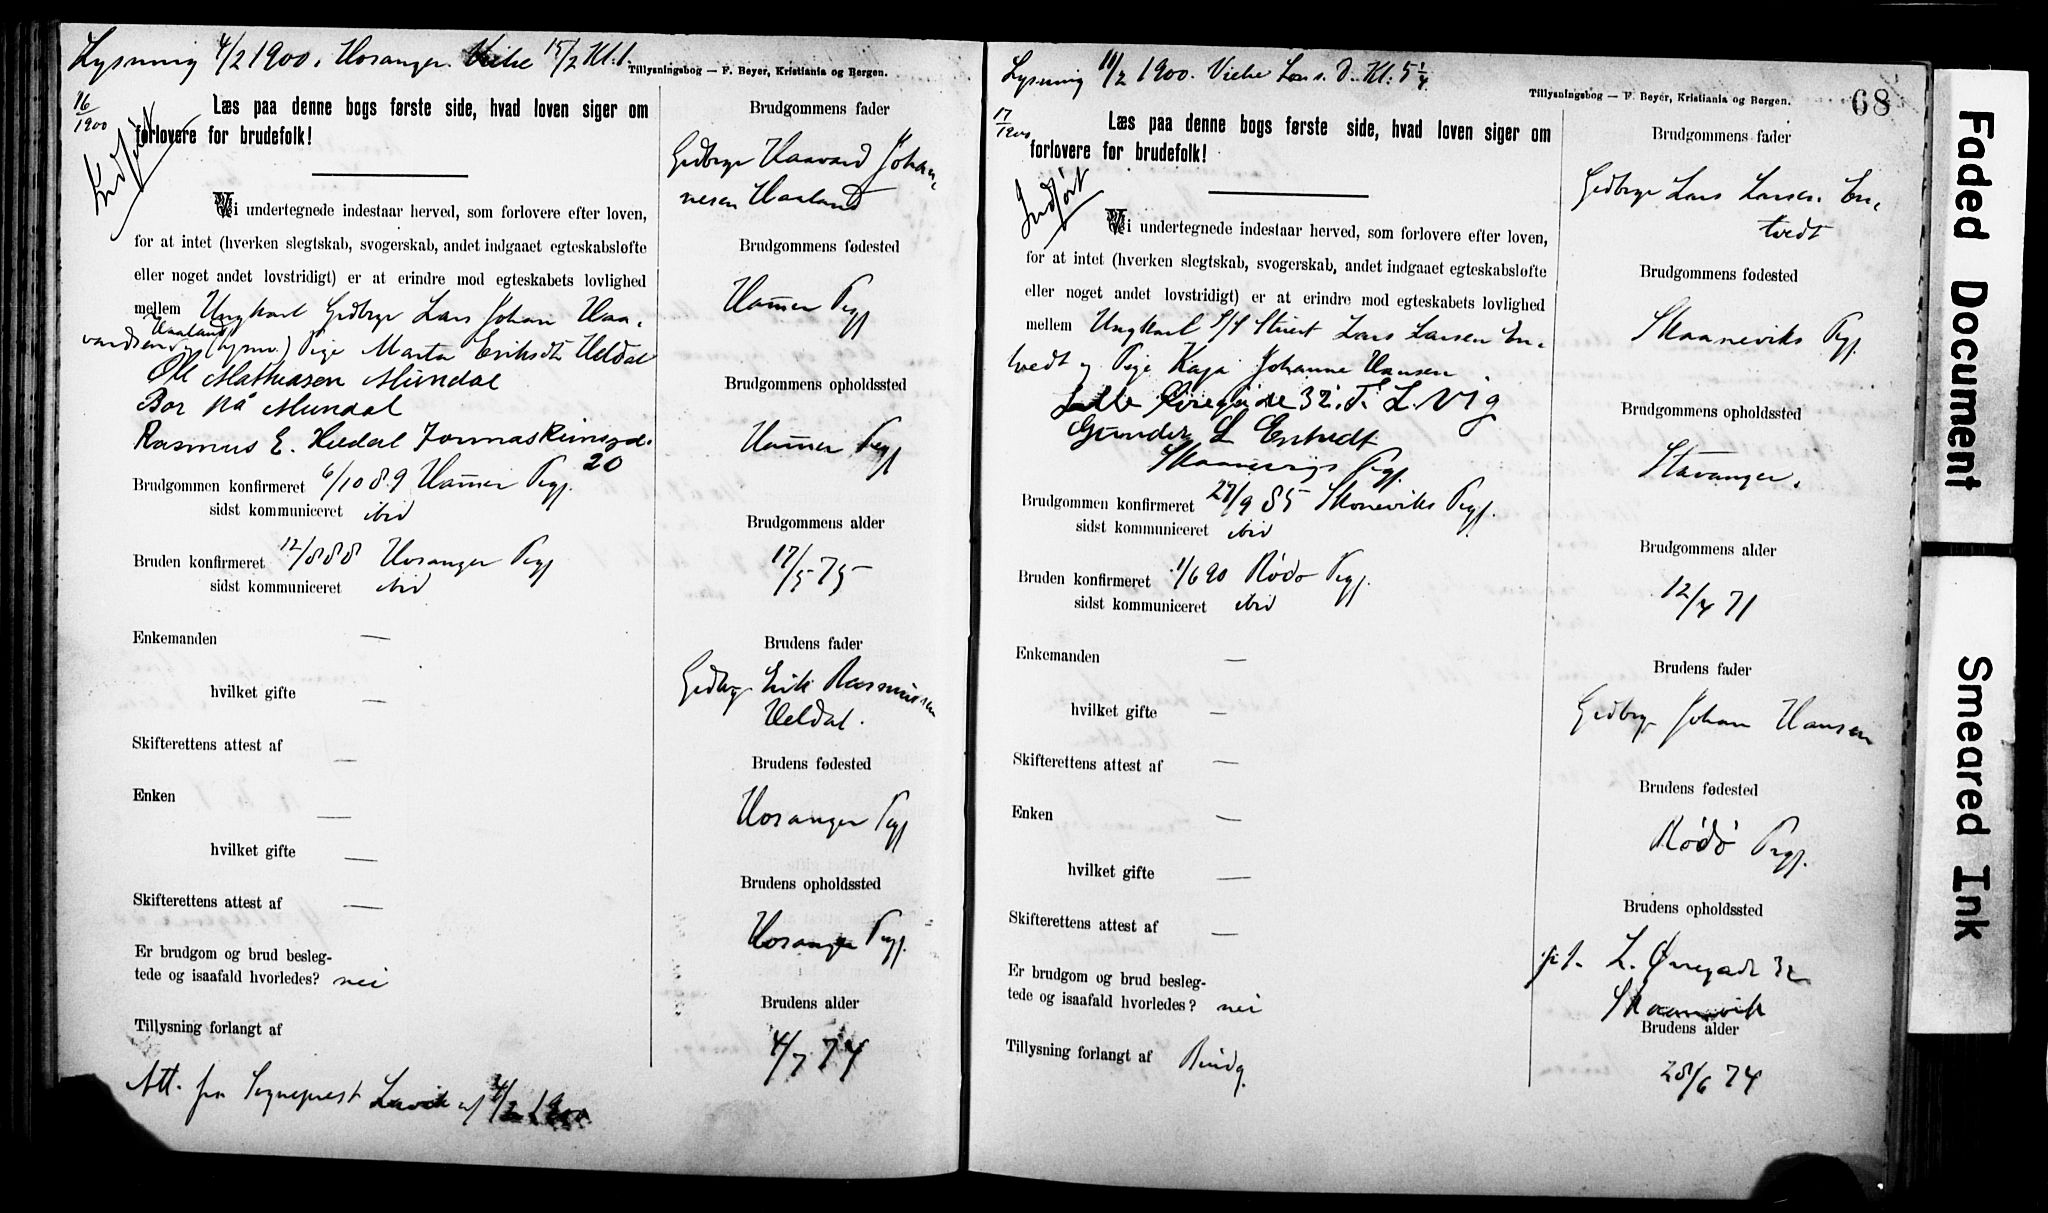 Lysning 4/2 1900. Hosanger. Vielse 15/2 Kl. 1.
Tillysningsbog — F. Beyer, Kristiania og Bergen.
16/1900
Indført
Læs paa denne bogs første side, hvad loven siger om
forlovere for brudefolk!
Vi undertegnede indestaar herved, som forlovere efter loven,
for at intet (hverken slegtskab, svogerskab, andet indgaaet egteskabsløfte
eller noget andet lovstridigt) er at erindre mod egteskabets lovlighed
mellem Ungkarl Gedbrgr Lars Johan Haa-
Haaland
vardsen Pige Marta Eriksdtr Heldal
Ole Mathiasen Mundal
Bor på Mundal
Rasmus E. Heldal
20
Brudgommen konfirmeret 6/10 89 Hamer Pgj.
sidst kommuniceret ibid
Bruden konfirmeret 12/8 88 Hosanger Pgj
sidst kommuniceret ibid
Enkemanden —
hvilket gifte —
Skifterettens attest af —
Enken —
hvilket gifte —
Skifterettens attest af —
Er brudgom og brud besleg-
tede og isaafald hvorledes? nei
Tillysning forlangt af
Att. fra Sogneprest Lavik af 4/2 1900
Brudgommens fader
Gedbrgr Haavard Johan-
nesen Haaland
Brudgommens fødested
Hamer Pgj
Brudgommens opholdssted
Hamer Pgj
Brudgommens alder
17/5 75
Brudens fader
Gedbrgr Erik Rasmussen
Heldal.
Brudens fødested
Hosanger Pgj
Brudens opholdssted
Hosanger Pgj.
Brudens alder
4/7 74
Lysning 11/2 1900. Vielse Lars. D. Kl. 5 1/4
Tillysningsbog — F. Beyer, Kristiania og Bergen.
68
17/1900
Indført
Læs paa denne bogs første side, hvad loven siger om
forlovere for brudefolk!
Vi undertegnede indestaar herved, som forlovere efter loven,
for at intet (hverken slegtskab, svogerskab, andet indgaaet egteskabsløfte
eller noget andet lovstridigt) er at erindre mod egteskabets lovlighed
mellem Ungkarl S/S Stuert Lars Larsen En-
tvedt og Pige Kaja Johanne Hansen.
Lille Øvregade 32. T. L. Vig
Gunder L Entvedt
Skaanevigs Pgj.
Brudgommen konfirmeret 27/9 85 Skoneviks Pgj.
sidst kommuniceret ibid
Bruden konfirmeret 1/6 90 Rödö Pgj.
sidst kommuniceret ibid
Enkemanden —
hvilket gifte —
Skifterettens attest af —
Enken —
hvilket gifte —
Skifterettens attest af —
Er brudgom og brud besleg-
tede og isaafald hvorledes? nei
Tillysning forlangt af Brudg.
Brudgommens fader
Gedbrgr Lars Larsen En-
tvedt
Brudgommens fødested
Skaaneviks Pgj.
Brudgommens opholdssted
Stavanger.
Brudgommens alder
12/4 71
Brudens fader
Gedbrgr Johan Hansen
Brudens fødested
Rödö Pgj.
Brudens opholdssted
p.t. L. Øvregade 32
Skaanevik
Brudens alder
28/6 74
Faded Document
Smeared Ink